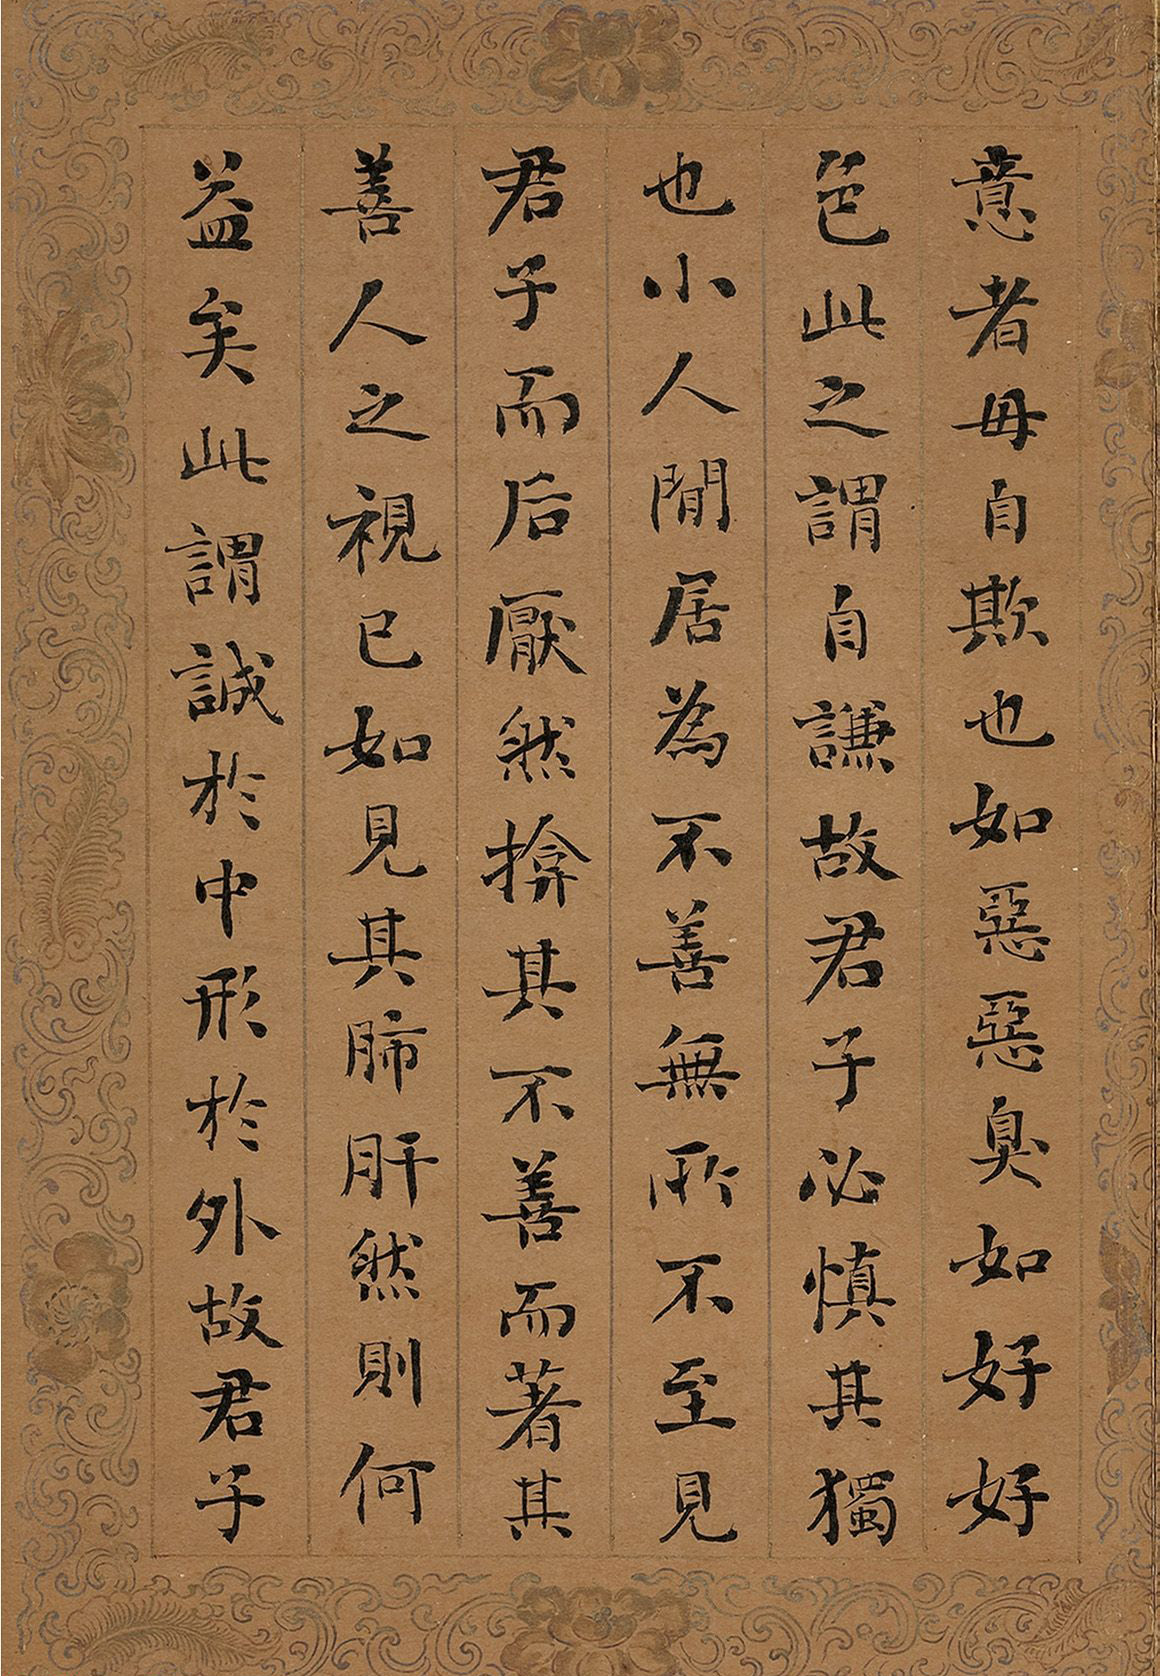 意者毋自欺也如惡惡臭如好好
色此之謂自謙故君子必慎其獨
也小人閒居為不善無所不至見
君子而后厭然揜其不善而著其
善人之視已如見其肺肝然則何
益矣此謂誠於中形於外故君子